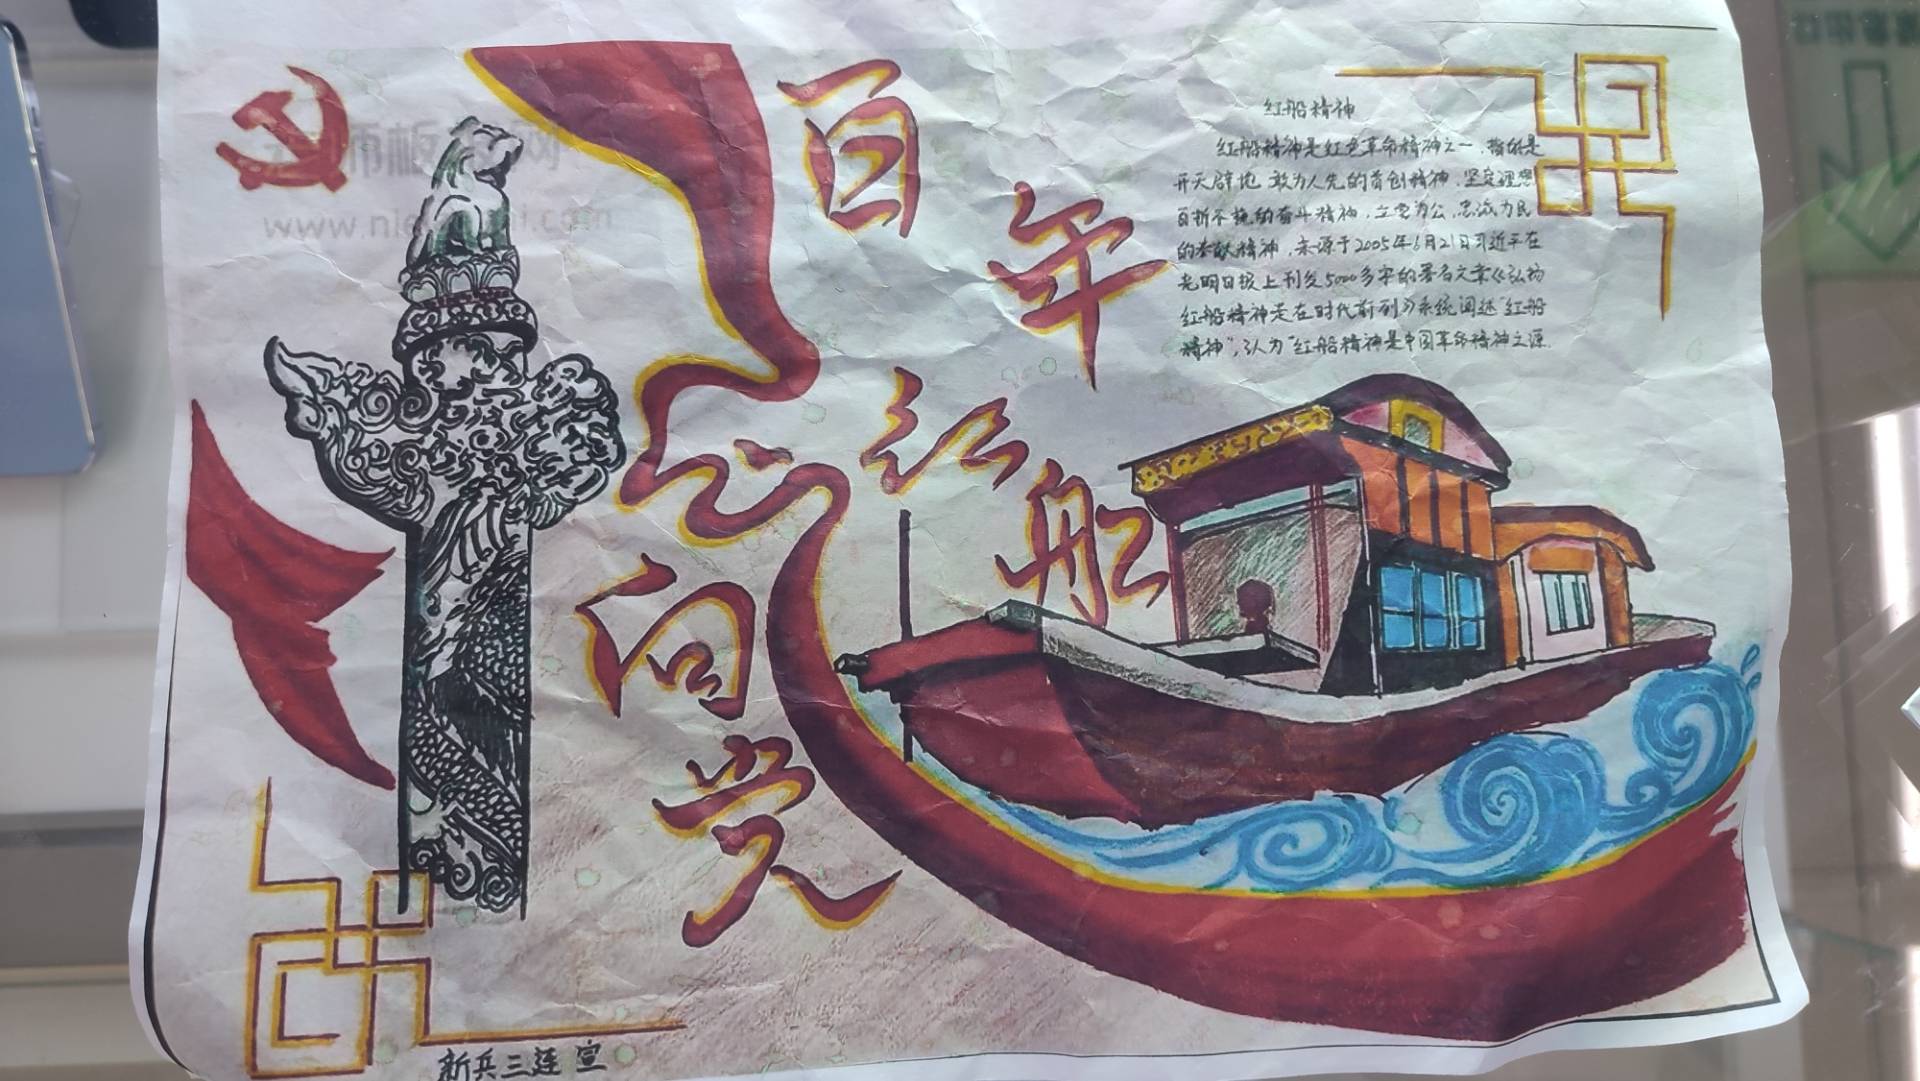 百年
红船
心
向党
红船精神
红船精神是红色革命精神之一，指的是
开天辟地 敢为人先的首创精神，坚定理想
百折不挠的奋斗精神，立党为公，忠诚为民
的奉献精神，来源于2005年6月21日习近平在
光明日报上刊发5000多字的署名文章《弘扬
红船精神走在时代前列》系统阐述“红船
精神”，认为“红船精神是中国革命精神之源
新兵三连 宣